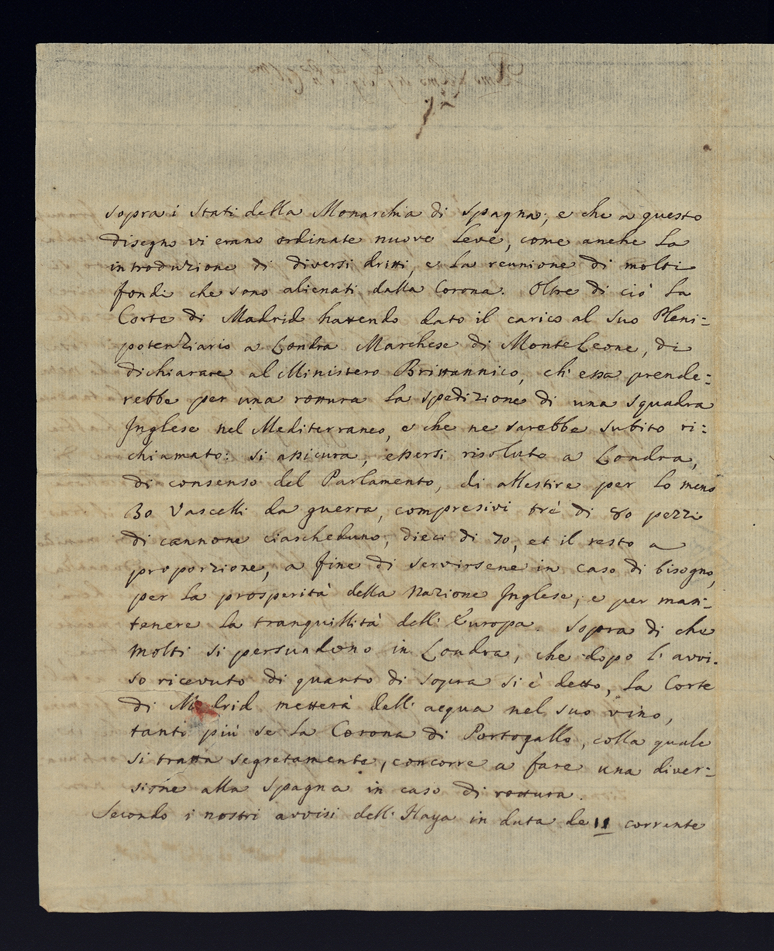 sopra i Stati della Monarchia di Spagna; e che a questo
disegno vi erano ordinate nuove Leve, come anche La
introduzione di diversi dritti, e La reunione di molti
fondi che sono alienati dalla Corona. Oltre di ciò La
Corte di Madrid havendo dato il carico al suo Pleni=
potenziario a Londra Marchese di MonteLeone, di
dichiarare al Ministero Brittannico, ch'essa prende=
rebbe per una rottura La spedizione di una squadra
Inglese nel Mediterraneo, e che ne sarebbe subito ri=
chiamato: si assicura, essersi risoluto a Londra,
di consenso del Parlamento, di allestire per Lo meno
30. Vascelli da guerra, compresivi trè di 80 pezzi
di cannone ciascheduno, dieci di 70, et il resto a
proporzione, a fine di servirsene in caso di bisogno,
per La prosperità della Nazione Inglese, e per man=
tenere La tranquillità dell'Europa. Sopra di che
molti si persuadono in Londra, che dopo L'avvi=
so ricevuto di quanto di sopra si è detto, La Corte
di Madrid metterà dell'acqua nel suo vino,
tanto più se La Corona di Portogallo, colla quale
si tratta segretamente, concorre a fare una diver=
sione alla Spagna in caso di rottura.
Secondo i nostri avvisi dell'Haya in data de 11 corrente